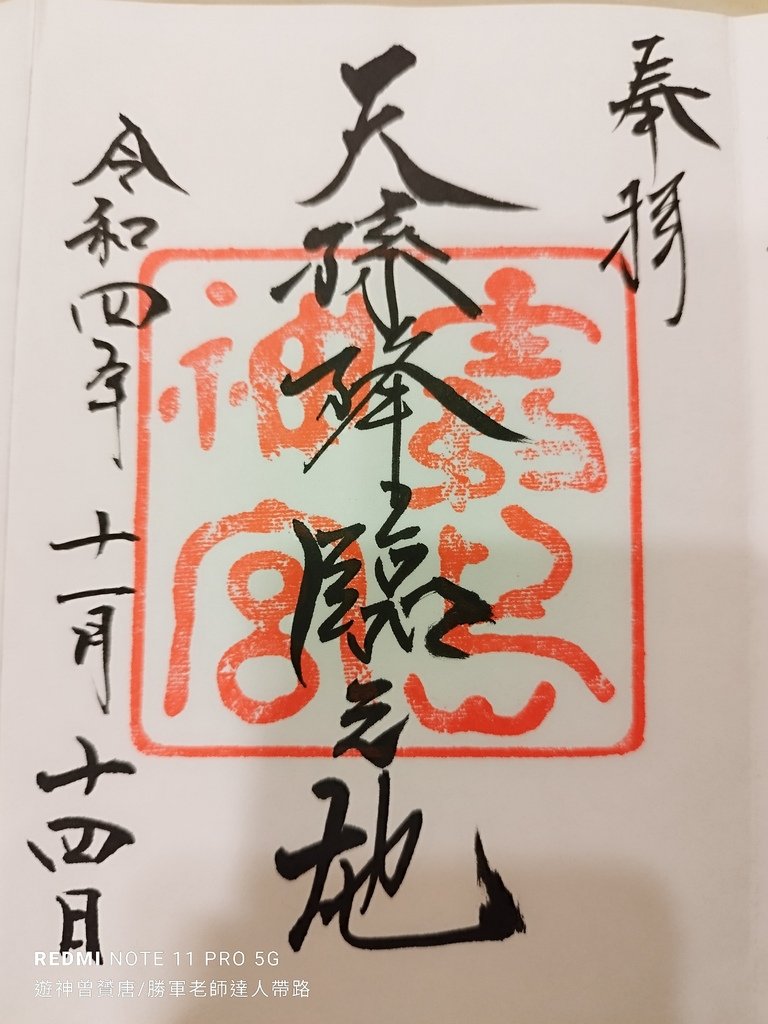 奉拝
天孫降臨之地
神宮
令和四年 十一月 十四日
REDMI NOTE 11 PRO 5G
遊神曾贊唐/勝軍老師達人帶路